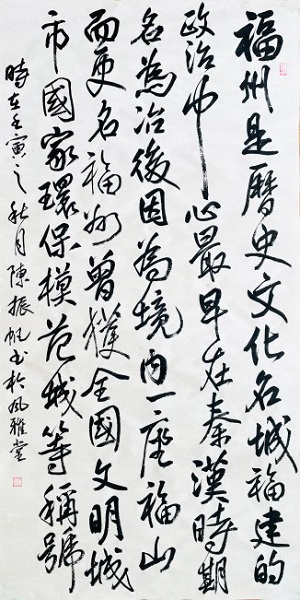 福州是曆史文化名城福建的
政治中心最早在秦漢時期
名為冶後因為境內一座福山
而更名福州曾獲全國文明城
市國家環保模范城等稱號
時在壬寅之秋月陳振帆书於風雅堂